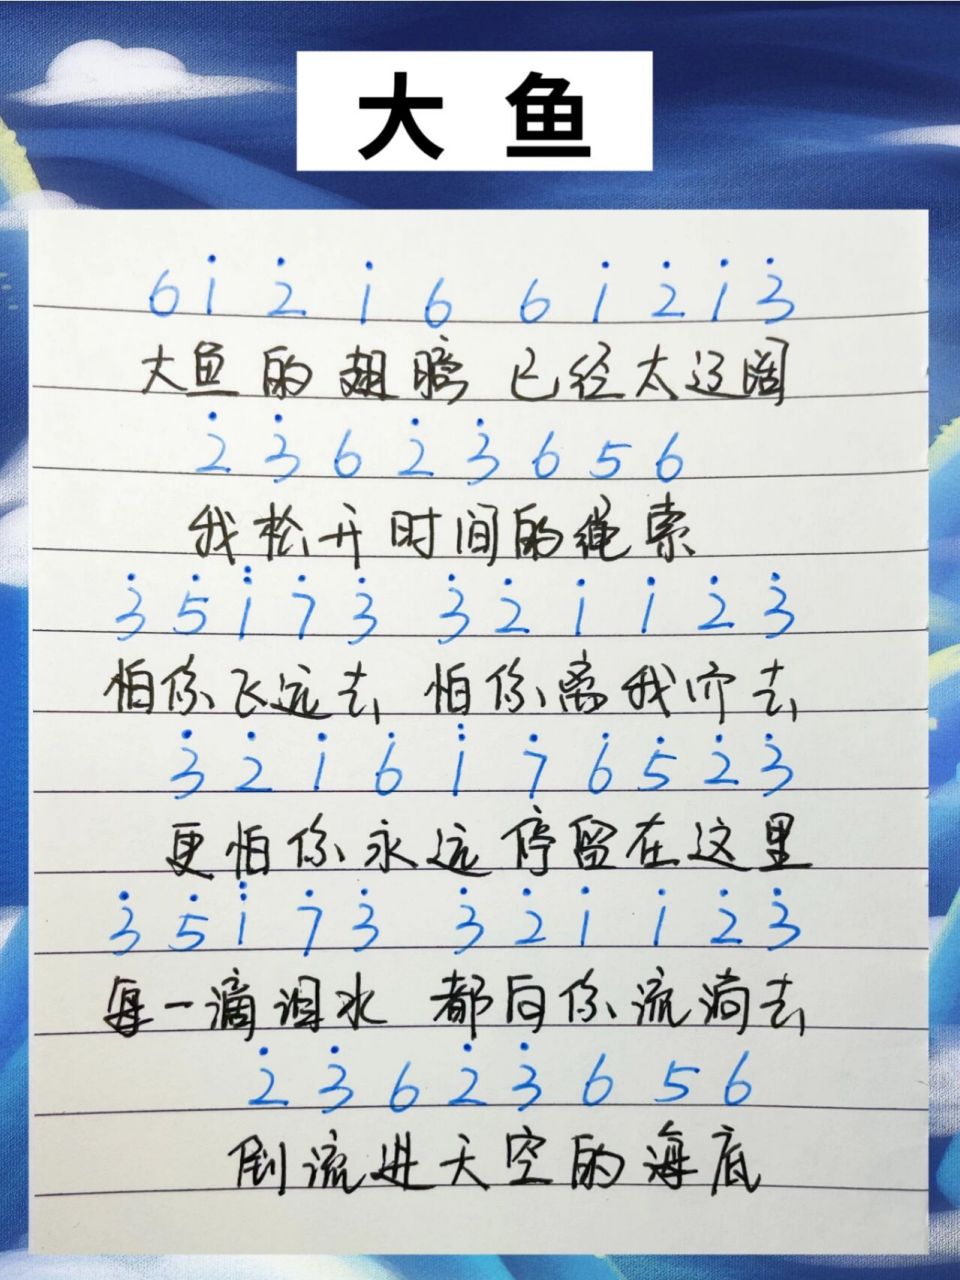 大鱼
6 1̇ 2̇ 1̇ 6 6 1̇ 2̇ 1̇ 3̇
大鱼的翅膀 已经太辽阔
2̇ 3̇ 6 2̇ 3̇ 6 5 6
我松开时间的绳索
3̇ 5̇ 1̈ 7̇ 3̇ 3̇ 2̇ 1̇ 1̇ 2̇ 3̇
怕你飞远去 怕你离我而去
3̈ 2̇ 1̇ 6̇ 1̈ 7̇ 6̇ 5̇ 2̇ 3̇
更怕你永远停留在这里
3̇ 5̇ 1̈ 7̇ 3̇ 3̇ 2̇ 1̇ 1̇ 2̇ 3̇
每一滴泪水 都向你流淌去
2̇ 3̇ 6 2̇ 3̇ 6 5 6
倒流进天空的海底